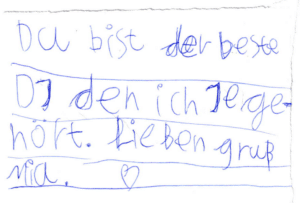 Du bist der beste
DJ den ich Jege-
hört. Lieben gruß
Mia.